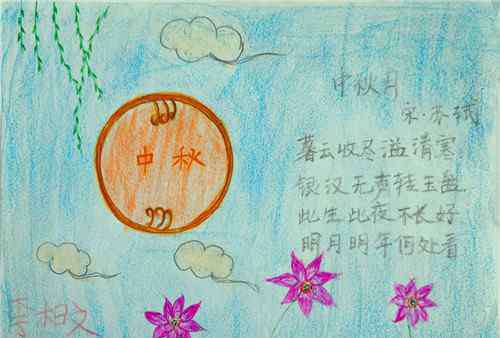 中秋
中秋月
宋·苏轼
暮云收尽溢清寒
银汉无声转玉盘
此生此夜不长好
明月明年何处看